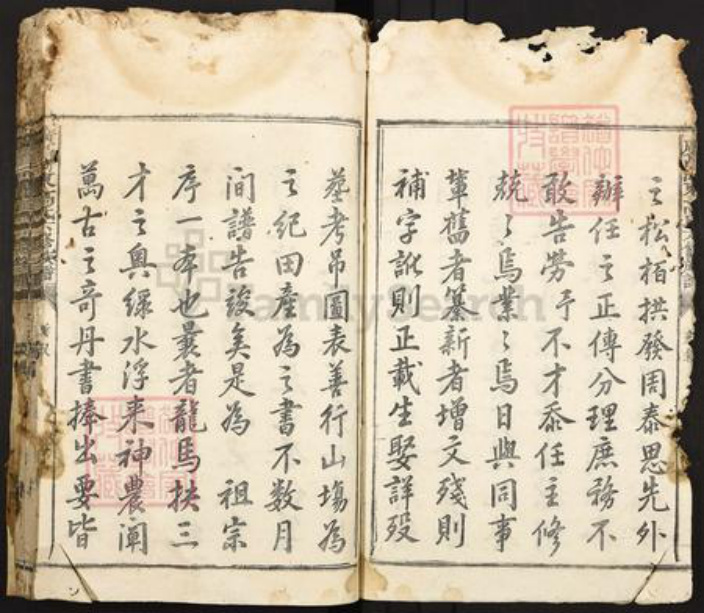 之松栢拱發周泰思先外
辦任之正傳分理庶務不
敢告勞予不才忝任主修
兢之焉業之焉日與同事
輩舊者纂新者增文殘則
補字訛則正載生娶詳殁
墓考吊圖表善行山塲為
之紀田產為之書不数月
间譜告竣矣是為 祖宗
序一本也曩者龍馬扶三
才之奥緑水浮来神農闡
萬古之奇丹書捧出要皆
FamilySearch